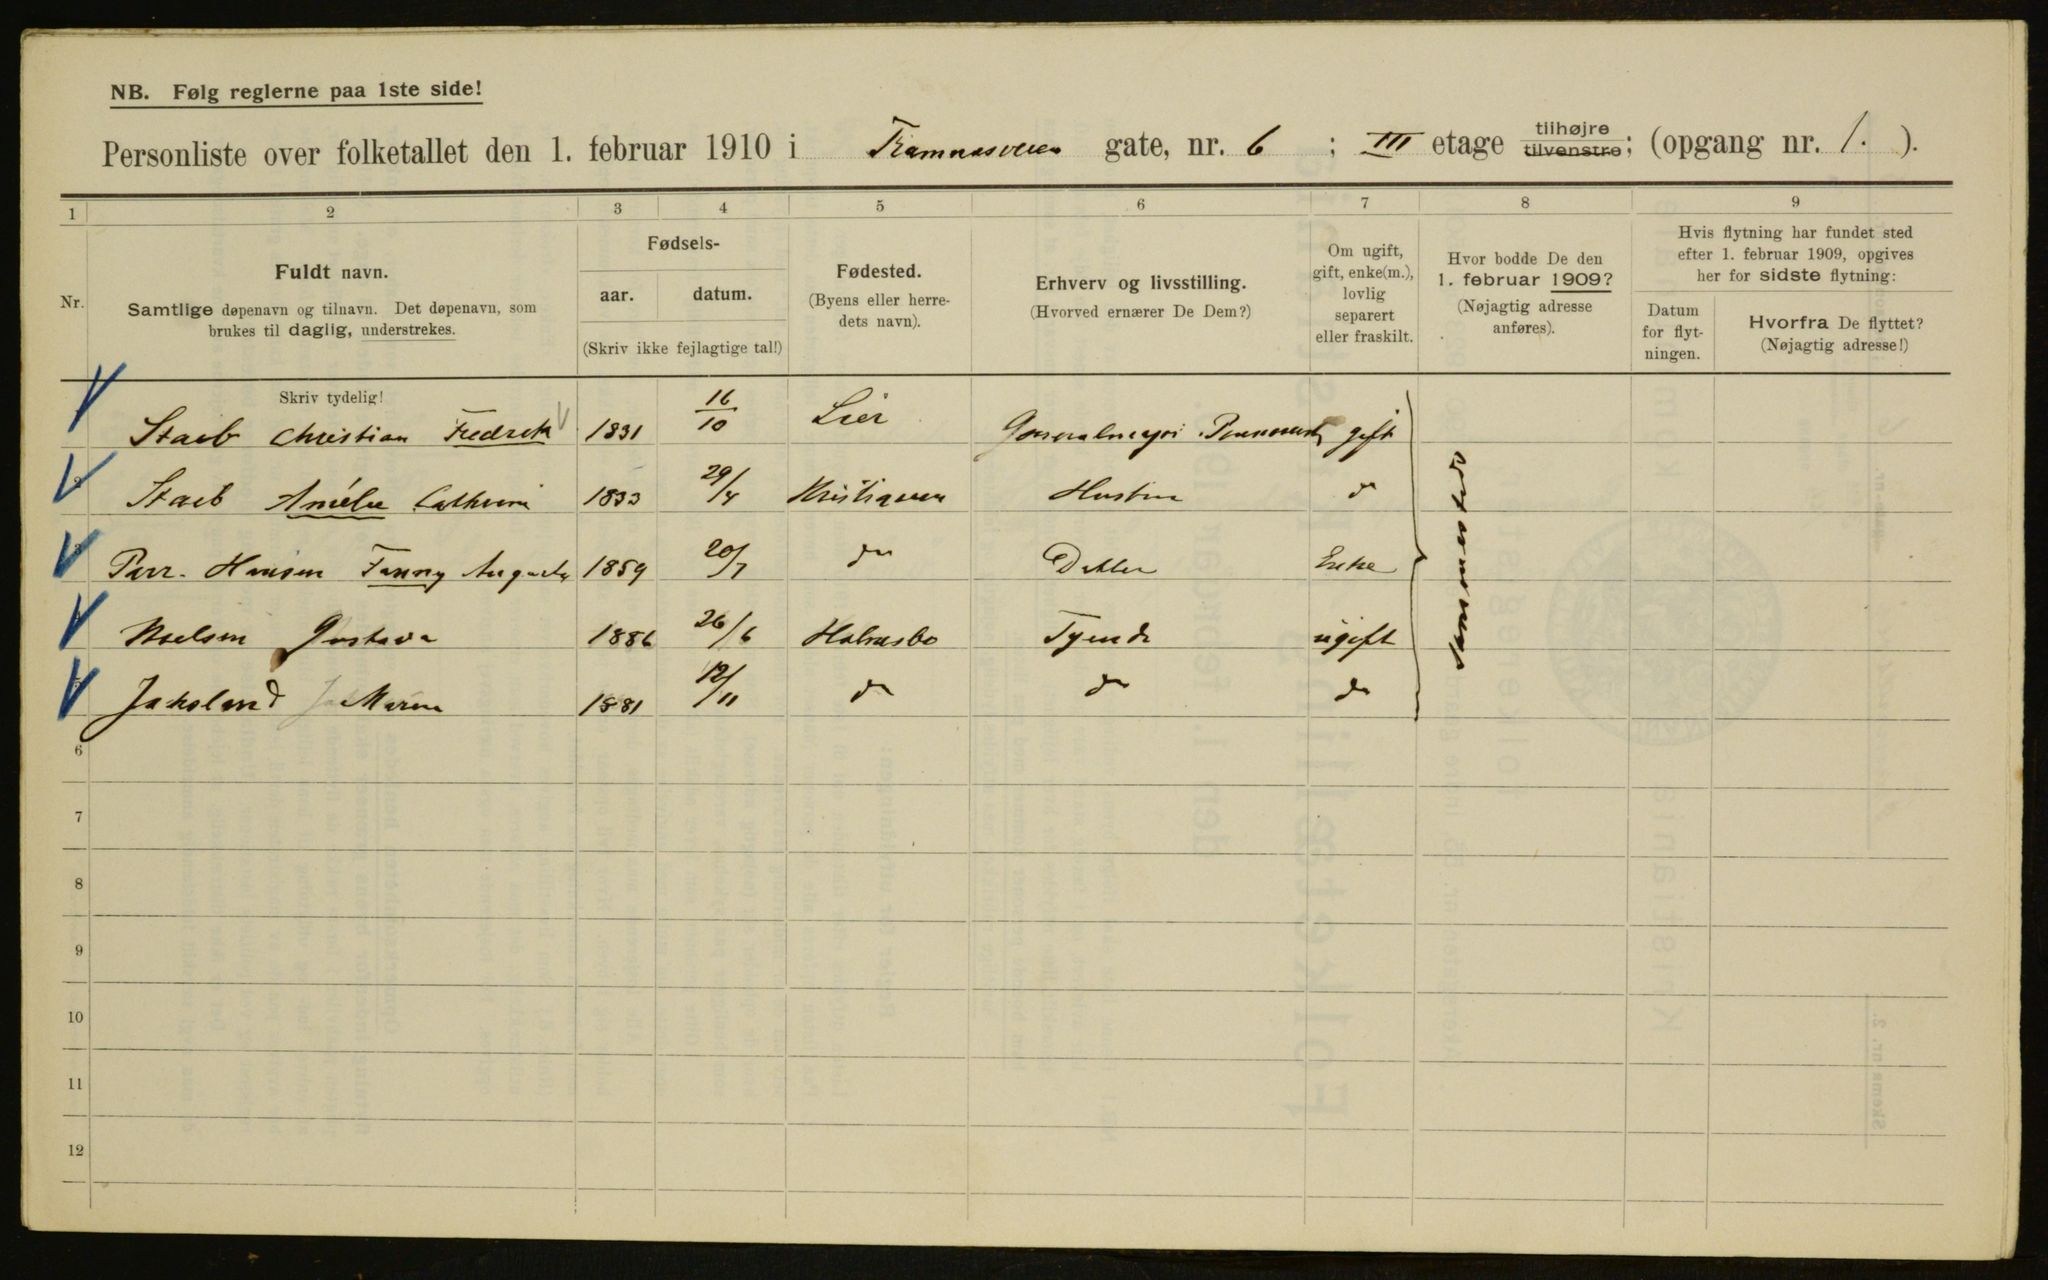 NB. Følg reglerne paa 1ste side!
Personliste over folketallet den 1. februar 1910 i Framnesveien gate, nr. 6 ; III etage tilhøjre tilvenstre; (opgang nr. 1. ).
1 2 3 4 5 6 7 8 9
Nr.
Fuldt navn.
Samtlige døpenavn og tilnavn. Det døpenavn, som
brukes til daglig, understrekes.
Fødsels-
aar. datum.
(Skriv ikke fejlagtige tal!)
Fødested.
(Byens eller herre-
dets navn).
Erhverv og livsstilling.
(Hvorved ernærer De Dem?)
Om ugift,
gift, enke(m.),
lovlig
separert
eller fraskilt.
Hvor bodde De den
1. februar 1909?
(Nøjagtig adresse
anføres).
Hvis flytning har fundet sted
efter 1. februar 1909, opgives
her for sidste flytning:
Datum
for flyt-
ningen.
Hvorfra De flyttet?
(Nøjagtig adresse!)
Skriv tydelig!
Staib Christian Fredrik 1831 16/10 Lier Generalmajor gift
Staib Amélie 1833 29/4 Kristiania Hustru do
Hansen Fanny Augusta 1859 20/7 do Datter Enke
Nielsen Gustava 1886 26/6 Holmsbo Tjende ugift
Jahsland Maren 1881 12/11 do do do
samme sted
6
7
8
9
10
11
12